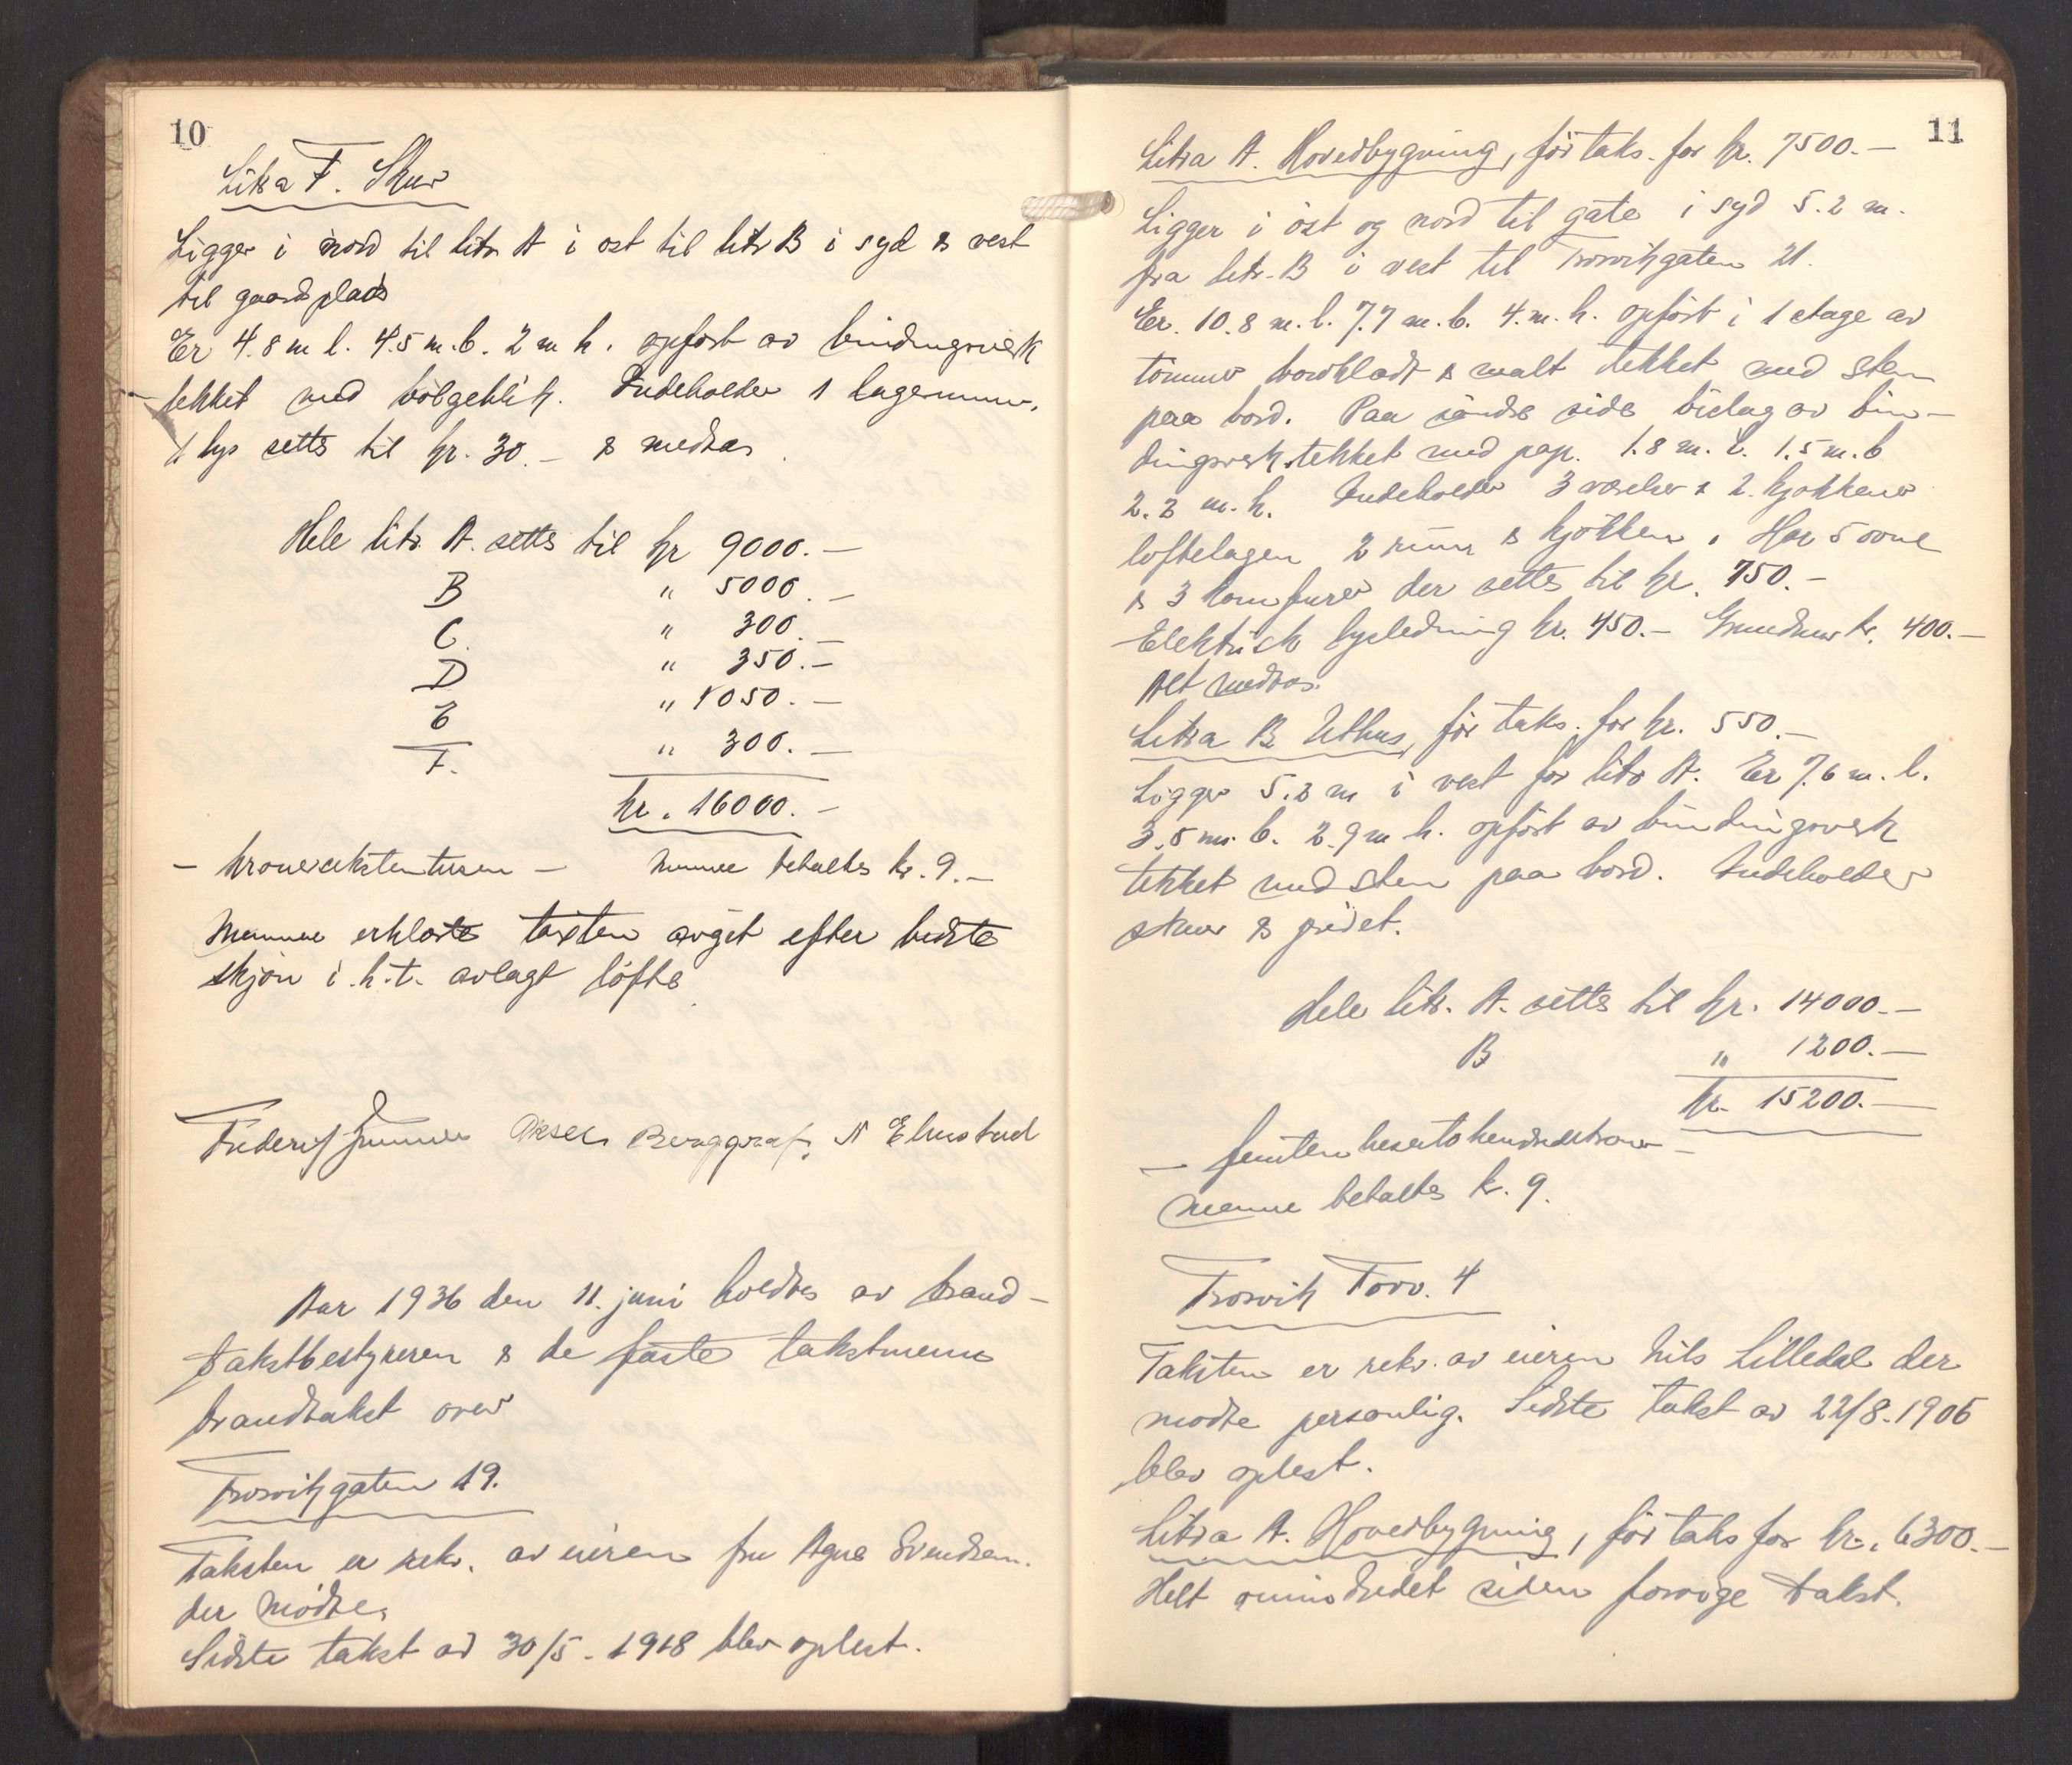 10
Litra F. Skur
Ligger i nord til litr A i ost til litr B i syd & vest
til gaardsplads
Er 4.8 m l. 4.5 m. b. 2 m h. opført av bindingsverk
tekket med bølgeblik. Indeholder 1 lagerrum.
1 lys settes til kr. 30.- & medtas.
Hele litr. A. settes til kr 9000.-
B " 5000.-
C. " 300.-
D " 350.-
E " 1050.-
F. " 300.-
kr. 16000.-
- kronersekstentusen - Mennene betaltes kr. 9.-
Mennene erklærte taxten avgit efter bedste
skjøn i. h. t. avlagt løfte
Aksel Berggraf. N Elnestad
Aar 1936 den 11. juni holdtes av brand-
takstbestyreren & de faste takstmenn
brandtakst over
Trosvikgaten 19.
Taksten er rekv. av eieren fru Agna Svendsen.
der møtte.
Sidste takst av 30/5 - 1918 blev oplest.
11
Litra A. Hovedbygning, før taks. for kr. 7500.-
Ligger i øst og nord til gate i syd 5.2 m.
fra litr. B i vest til Trosvikgaten 21.
Er. 10.8 m. l. 7.7 m. b. 4. m. h. opført i 1 etage av
tømmer bordklædt & malt tekket med sten
paa bord. Paa søndre side bislag av bin-
dingsverk tekket med pap. 1.8 m. l. 1.5 m. b
2.2 m. h. Indeholder 3 værelser & 2. kjøkkener
loftetagen 2 rum & kjøkken. Har 5 ovne
& 3 komfurer der settes til kr. 750.-
Elektrisk lysledning kr. 450.- Grundmur kr. 400.-
Alt medtas.
Litra B Uthus, før taks. for kr. 550.-
Ligger 5.2 m i vest for litr A. Er 7.6 m. l.
3.5 m. b. 2.9 m h. opført av bindingsverk
tekket med sten paa bord. Indeholder
skur & privet.
Hele litr. A. settes til kr. 14000.-
B " 1200.-
kr. 15200.-
- femtentusentohundredekroner -
Mennene betaltes kr. 9.
Trosvik Torv. 4
Taksten er rekv. av eieren Nils Lilledal der
møtte personlig. Sidste takst av 22/8-1906
blev oplest.
Litra A. Hovedbygning, før taks for kr. 6300.-
Helt ominnredet siden forrige takst.